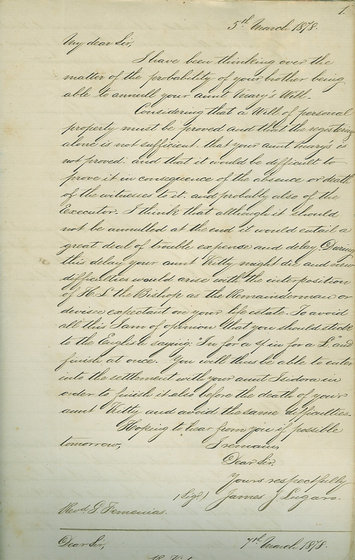 1
5th March 1878.
My dear Sir,
I have been thinking over the
matter of the probability of your brother being
able to annull your aunt Mary's Will.
Considering that a Will of personal
property must be proved and that the registering
alone is not sufficient. that your aunt Mary's is
not proved. and that it would be difficult to
prove it in consequence of the absence or death
of the witnesses to it. and probably also of the
Executor. I think that although it should
not be annulled at the end it would entail a
great deal of trouble expense and delay. During
this delay your aunt Kitty might die and new
difficulties would arise with the interposition
of H. L. the Bishop as the Remainderman or
devisee expectant on your life estate. To avoid
all this I am of opinion that you should stick
to the English saying: In for a d in for a £ and
finish at once. You will thus be able to enter
into the settlement with your aunt Isidora in
order to finish it also before the death of your
aunt Kitty and avoid the same difficulties.
Hoping to hear from you if possible
tomorrow,
I remain,
Dear Sir,
Yours respectfully
(Sigd) James J Lugaro.
Revd. G. Femenias.
Dear Sir,
7th March 1878.